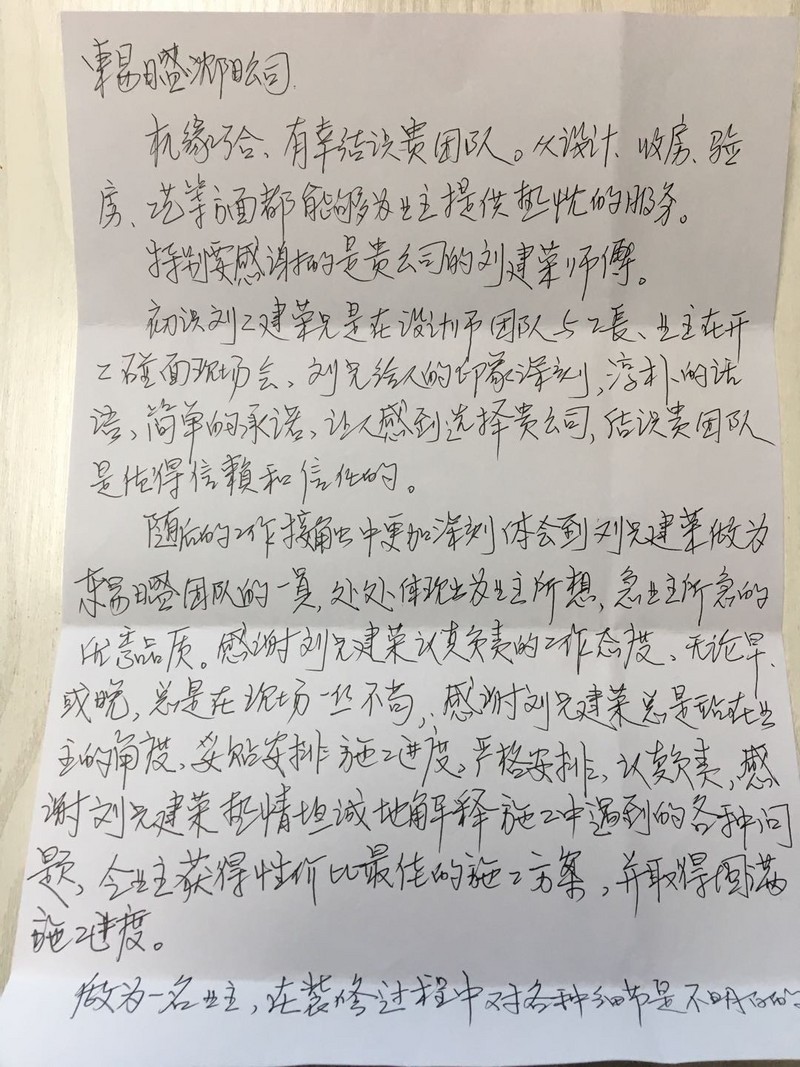 東易日盛沈阳公司.
机缘巧合、有幸结识贵团队。从设计、收房、验
房、选等方面都能够为业主提供热忱的服务。
特别要感谢的是贵公司的刘建荣师傅。
初识刘工建荣兄是在设计师团队与工長、业主在开
工碰面现场会、刘兄给人的印象深刻,淳朴的话
语,简单的承诺,让人感到选择贵公司,结识贵团队
是值得信賴和信任的。
随后的工作接触中更加深刻体会到刘兄建荣做为
東易日盛团队的一員,处处体现出为业主所想,急业主所急的
优秀品质。感谢刘兄建荣认真负责的工作态度、无论早
或晚,总是在现场一丝不苟,感谢刘兄建荣总是站在业
主的角度,妥贴安排施工进度,严格安排、认真负责,感
谢刘兄建荣热情坦诚地解释施工中遇到的各种问
题,令业主获得性价比最佳的施工方案,并取得圆满
施工进度。
做为一名业主,在装修过程中对各种细节是不明白的